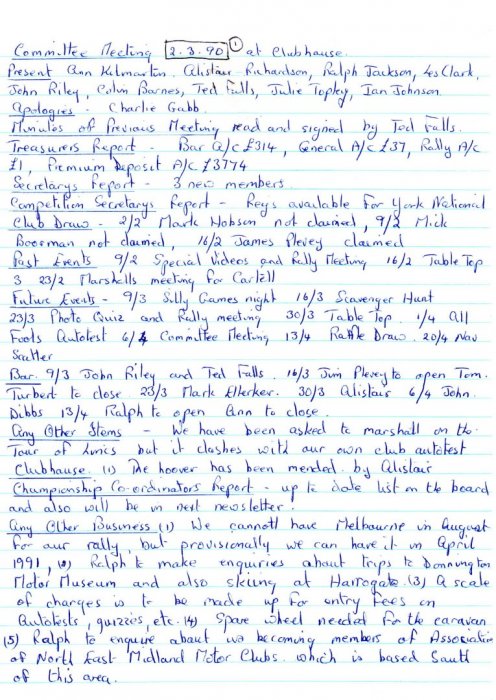 Committee Meeting 2.3.90 ① at Clubhouse.
Present Ann Kilmartin, Alistair Richardson, Ralph Jackson, Les Clark,
John Riley, Colin Barnes, Ted Falls, Julie Topley, Ian Johnson.
Apologies - Charlie Gabb.
Minutes of Previous Meeting read and signed by Ted Falls.
Treasurers Report - Bar A/c £314, General A/c £37, Rally A/c
£1, Premium Deposit A/c £3774
Secretarys Report - 3 new members.
Competition Secretarys Report - Regs available for York National
Club Draw - 2/2 Mark Hobson not claimed, 9/2 Mick
Boorman not claimed, 16/2 James Plevey claimed
Past Events 9/2 Special Videos and Rally Meeting 16/2 Table Top
3 23/2 Marshalls meeting for Cartell
Future Events - 9/3 Silly Games night 16/3 Scavenger Hunt
23/3 Photo Quiz and Rally meeting 30/3 Table Top. 1/4 All
Fools Autotest 6/4 Committee Meeting 13/4 Raffle Draw. 20/4 Nav
Scatter
Bar. 9/3 John Riley and Ted Falls. 16/3 Jim Plevey to open Tom.
Turbert to close 23/3 Mark Ellerker. 30/3 Alistair 6/4 John.
Dibbs 13/4 Ralph to open Ann to close.
Any Other Items - We have been asked to marshall on the
Tour of Lincs but it clashes with our own club autotest
Clubhouse. (1) The hoover has been mended by Alistair
Championship Co-ordinators Report - up to date list on the board
and also will be in next newsletter.
Any Other Business (1) We cannott have Melbourne in August
for our rally, but provisionally we can have it in April
1991, (2) Ralph to make enquiries about trips to Donnington
Motor Museum and also skiing at Harrogate. (3) A scale
of charges is to be made up for entry fees on
Autotests, quizzies, etc. (4) Spare wheel needed for the caravan.
(5) Ralph to enquire about us becoming members of Association
of North East Midland Motor Clubs. which is based South
of this area.